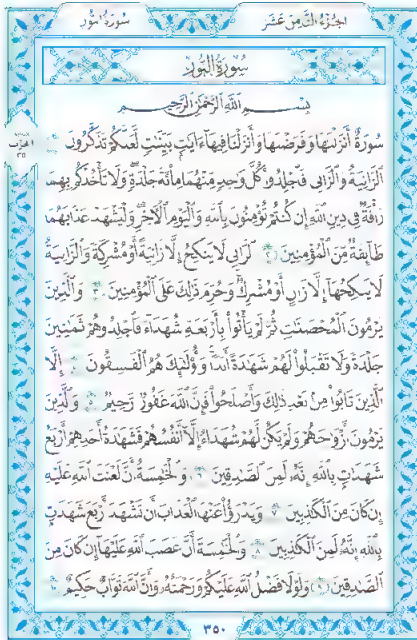 سورة النور الجزء الثامن عشر
سورة النور
بسم الله الرحمن الرحيم
سورة أنزلناها وفرضناها وأنزلنا فيها ءايات بينات لعلكم تذكرون ١
الحزب ٣٥
الزانية والزاني فاجلدوا كل واحد منهما مائة جلدة ولا تأخذكم بهما
رأفة في دين الله إن كنتم تؤمنون بالله واليوم الآخر وليشهد عذابهما
طائفة من المؤمنين ٢ الزاني لا ينكح إلا زانية أو مشركة والزانية
لا ينكحها إلا زان أو مشرك وحرم ذلك على المؤمنين ٣ والذين
يرمون المحصنات ثم لم يأتوا بأربعة شهداء فاجلدوهم ثمانين
جلدة ولا تقبلوا لهم شهادة أبدا وأولئك هم الفاسقون ٤ إلا
الذين تابوا من بعد ذلك وأصلحوا فإن الله غفور رحيم ٥ والذين
يرمون أزواجهم ولم يكن لهم شهداء إلا أنفسهم فشهادة أحدهم أربع
شهادات بالله إنه لمن الصادقين ٦ والخامسة أن لعنت الله عليه
إن كان من الكاذبين ٧ ويدرؤا عنها العذاب أن تشهد أربع شهادات
بالله إنه لمن الكاذبين ٨ والخامسة أن غضب الله عليها إن كان من
الصادقين ٩ ولولا فضل الله عليكم ورحمته وأن الله تواب حكيم ١٠
٣٥٠